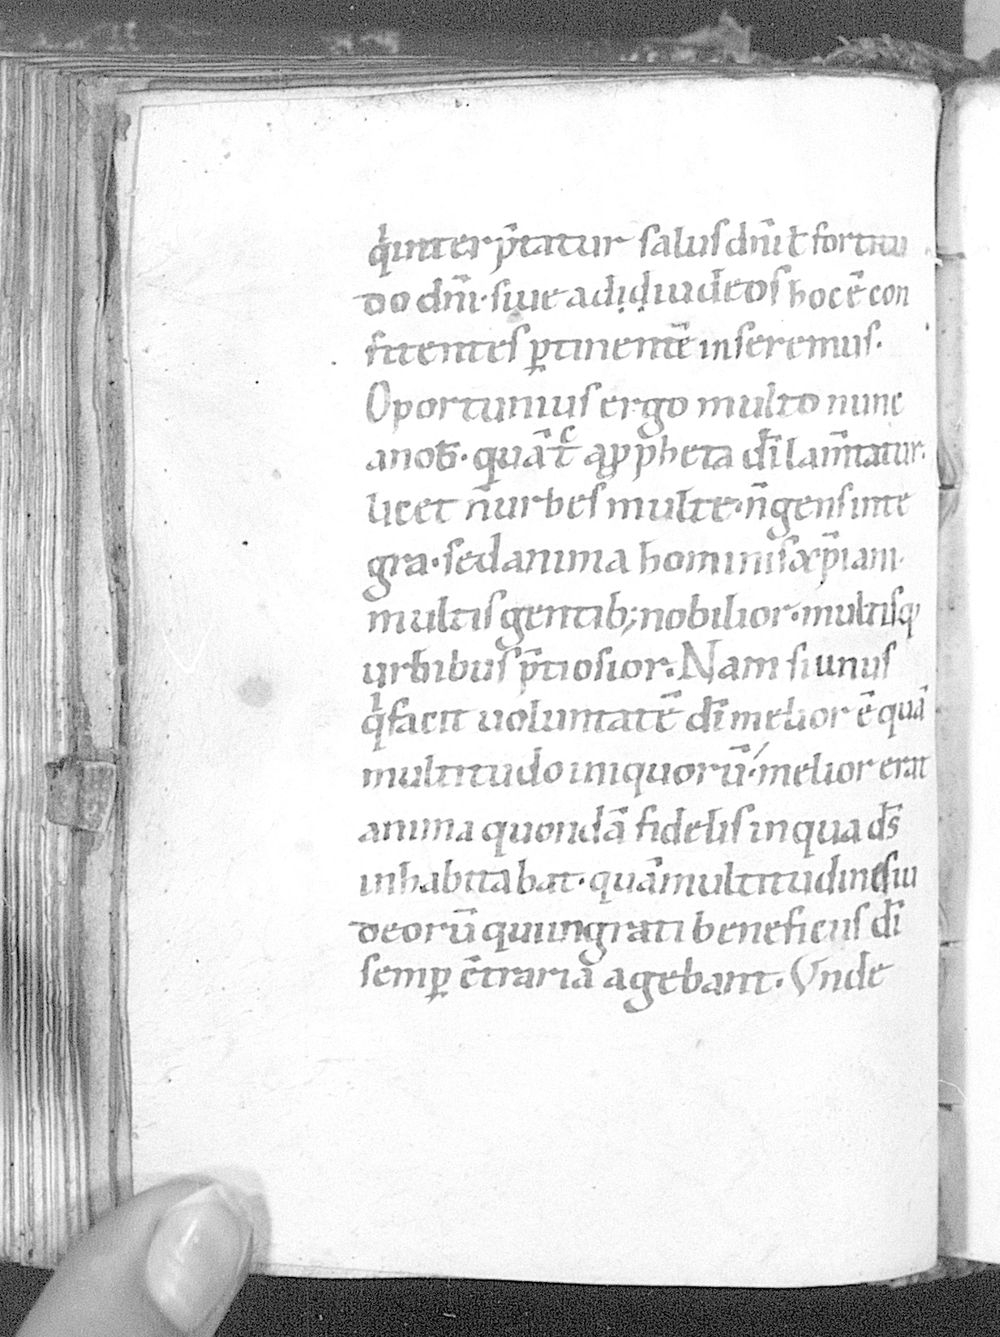 q̇inter p̄tatur salus dn̄i t̄ fortitu
do dn̄i. siue ad iudeos hoc ē con
fitentes ꝑtinentē inseremus.
Oportunius ergo multo nunc
a nob̄. quā t̄c a ꝓpheta dī lam̄tatur.
licet n̄ urbes multe. n̄ gens inte
gra. sed anima hominis xp̄iani
multis gentib; nobilior. multisq;
urbibus p̄tiosior. Nam si unus
q̇ facit uoluntatē dī melior ē quā
multitudo iniquorū. melior erat
anima quondā fidelis in qua ds̄
inhabitabat. quā multitudines iu
deorū qui ingrati beneficiis dī
semꝑ c̄traria agebant. Vnde